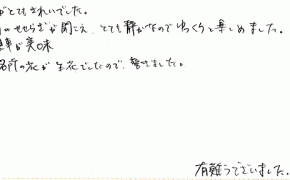 がとてもきれいでした。
のせせらぎが聞こえ、とても静かなのでゆっくりと楽しめました。
が美味
名所の花が生花でしたので、驚きました。
有難うございました。